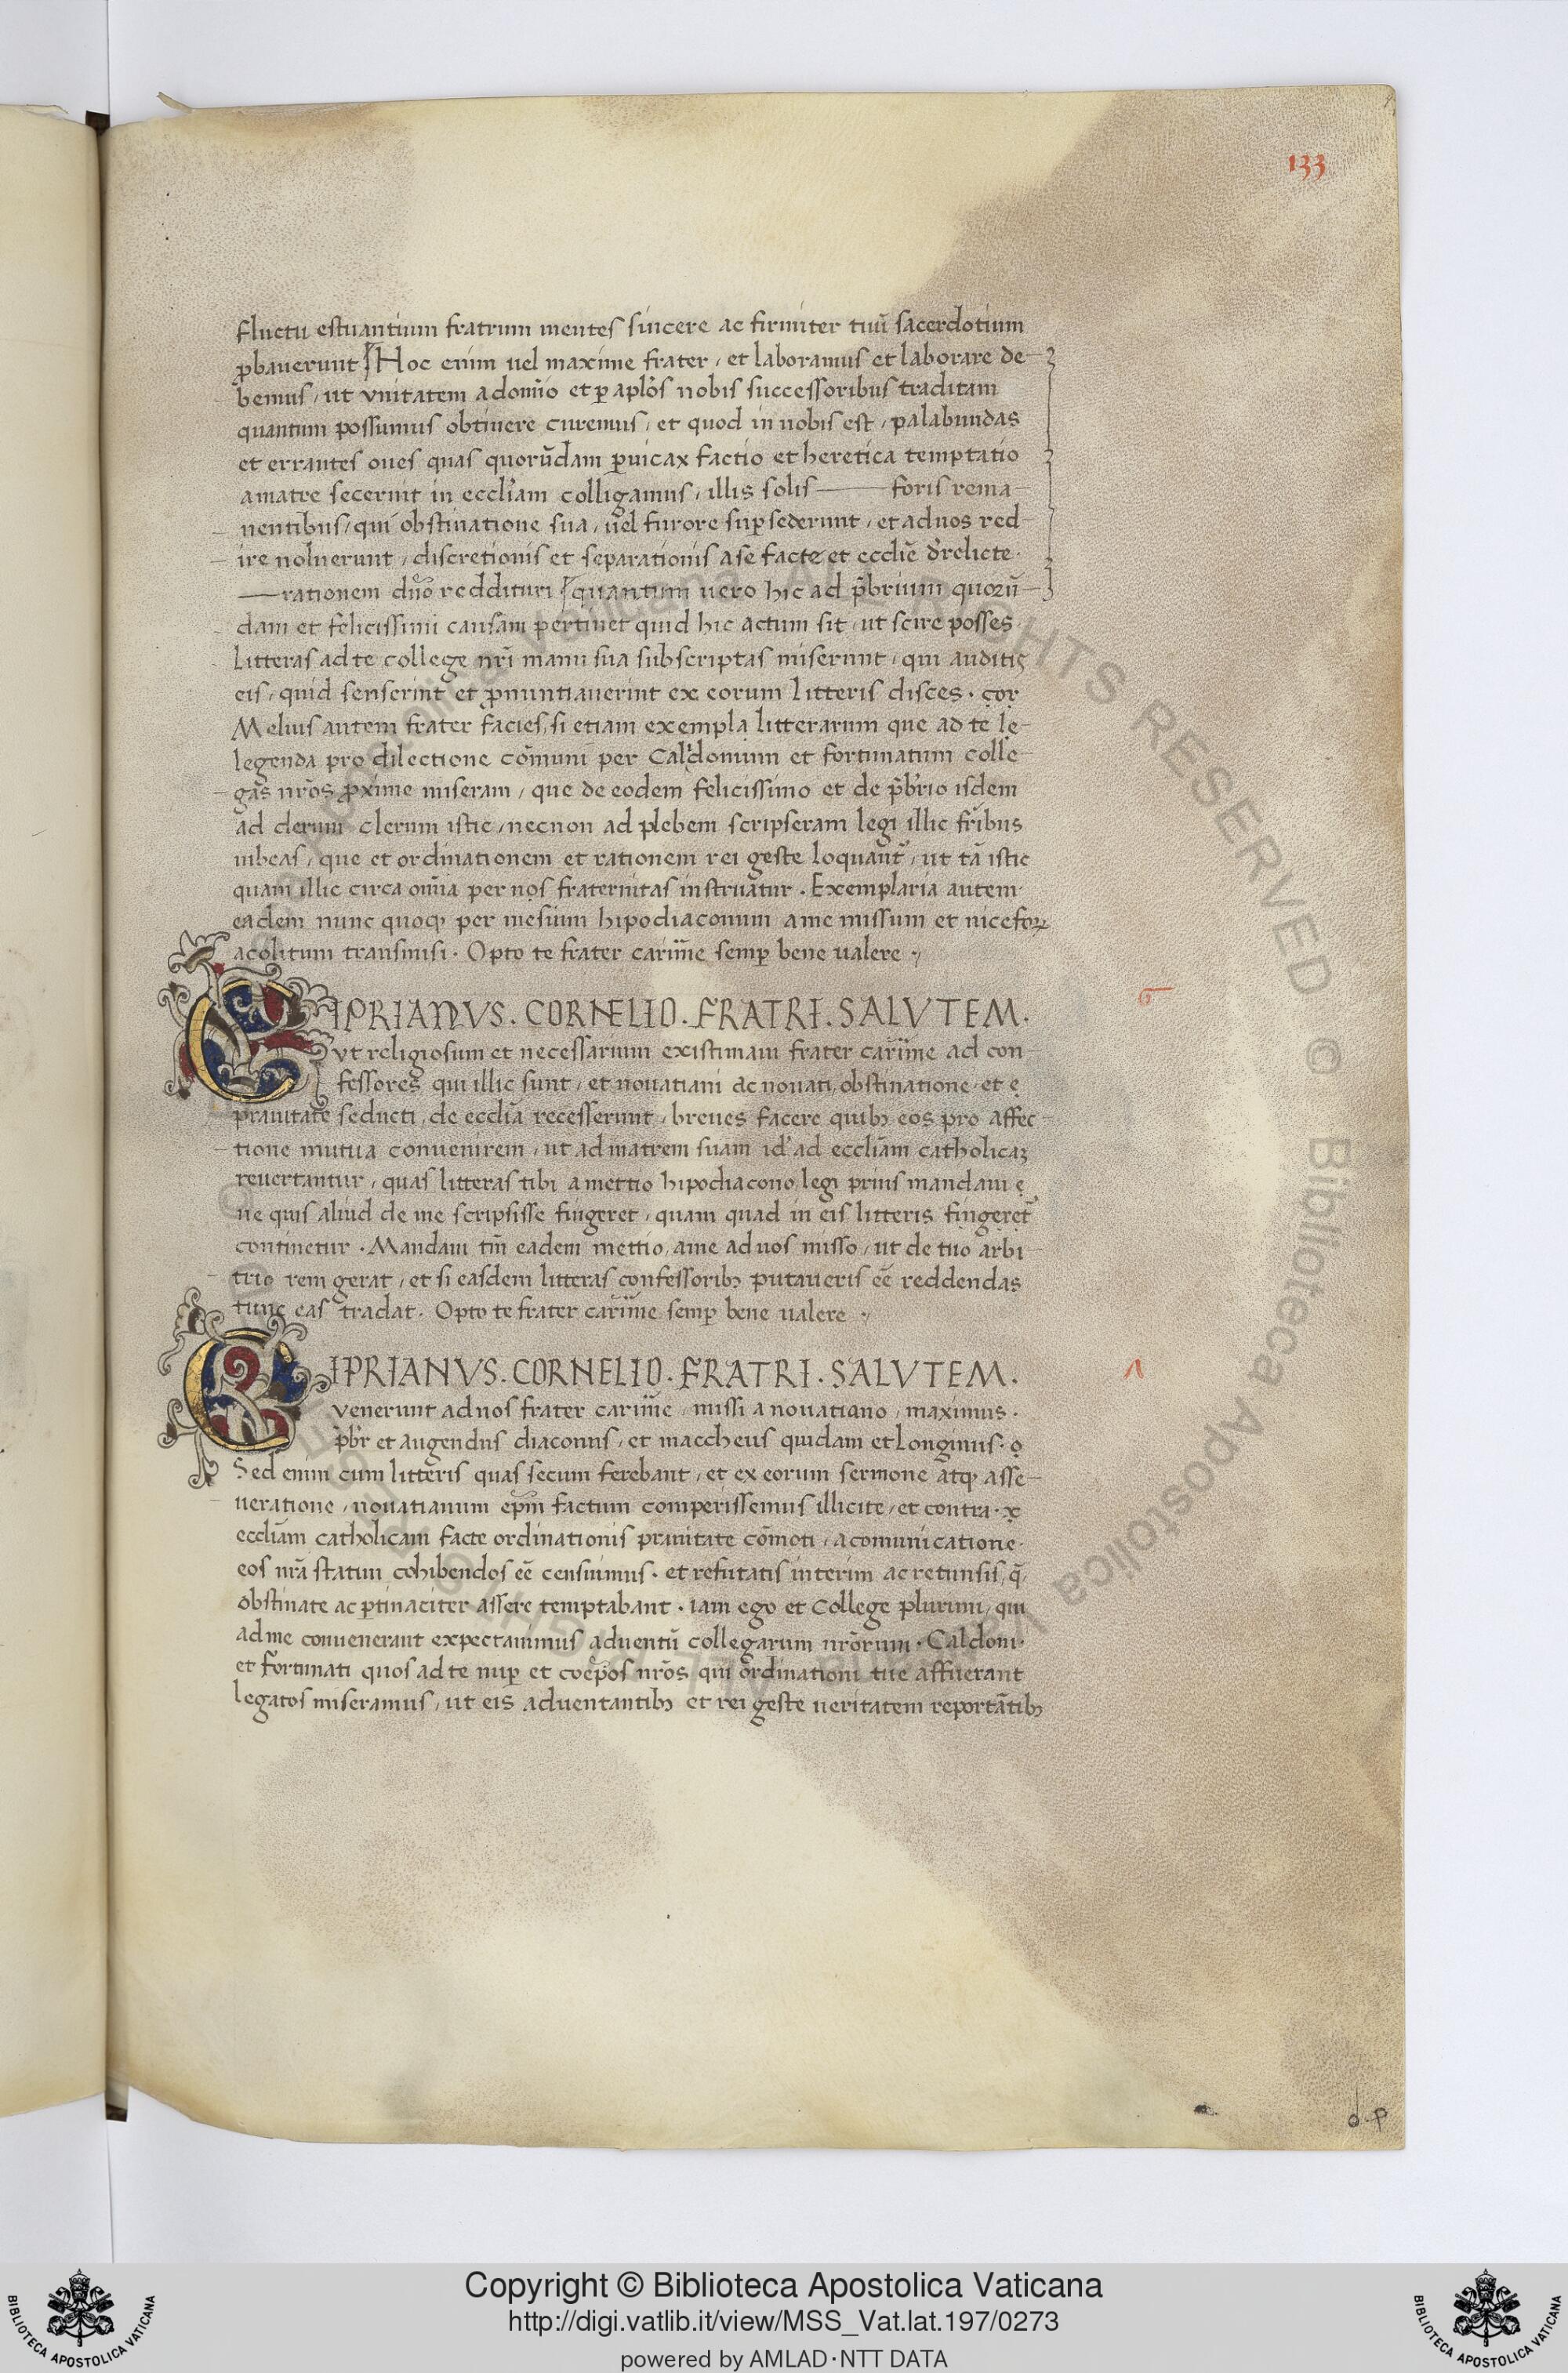 133
fluctu estuantium fratrum mentes sincere ac firmiter tuū sacerdotium
p̱bauerunt Hoc enim uel maxime frater, et laboramus et laborare de
bemus, ut vnitatem a domīo et p̱ aplōs nobis successoribus traditam
quantum possumus obtinere curemus, et quod in nobis est, palabundas
et errantes oues quas quorūdam p̱uicax factio et heretica temptatio
a matre secernit in eccliam colligamus, illis solis —— foris rema
nentibus, qui obstinatione sua, uel furore sup̱sederunt, et ad nos red
ire noluerunt, discretionis et separationis a se facte et ecclie d'relicte.
—rationem dn̄o reddituri quantum uero hic ad p̄brium quorū
dam et felicissimi causam pertinet quid hic actum sit, ut scire posses.
Litteras ad te college nr̄i manu sua subscriptas miserunt, qui auditis
eis, quid senserint et p̱nuntiauerint ex eorum litteris disces. cor
Melius autem frater facies, si etiam exempla litterarum que ad te le
legenda pro dilectione cōmuni per Caldonium et fortunatum colle
gas nr̄os p̱xime miseram, que de eodem felicissimo et de p̄brio isdem
ad clerum clerum istic, necnon ad plebem scripseram legi illic fr̄ibus
iubeas, que et ordinationem et rationem rei geste loquant', ut tā istic
quam illic circa omīa per nos fraternitas instruatur. Exemplaria autem.
eadem nunc quoq, per mesium hipodiaconum a me missum et nicefor
acolitum transmisi. Opto te frater carim̄e semp̱ bene ualere
CIPRIANVS. CORNELIO. FRATRI. SALVTEM.
vt religiosum et necessarium existimaui frater carim̄e ad con
fessores qui illic sunt, et nouatiani ac nouati, obstinatione, et e
prauitate seducti, de ecclīa recesserunt, breues facere quib; eos pro affec
tione mutua conuenirem, ut ad matrem suam id' ad ecclīam catholicaz
reuertantur, quas litteras tibi a mettio hipodiacono legi prius mandaui e
ne quis aliud de me scripsisse fingeret, quam quad in eis litteris fingeret
continetur. Mandaui tm̄ eadem mettio, a me ad uos misso, ut de tuo arbi
trio rem gerat, et si easdem litteras confessorib; putaueris eē reddendas
tunc eas tradat. Opto te frater carim̄e semp̱ bene ualere
CIPRIANVS. CORNELIO. FRATRI. SALVTEM.
venerunt ad nos frater carim̄e, missi a nouatiano, maximus.
p̄br et augendus diaconus, et maccheus quidam et Longinus. o
Sed enim cum litteris quas secum ferebant, et ex eorum sermone atq, asse
ueratione, nouatianum ep̄m factum comperissemus illicite, et contra. x
ecclīam catholicam facte ordinationis prauitate cōmoti, a comunicatione.
eos nrā statim cohibendos eē censuimus. et refutatis interim ac retunsis, q̄
obstinate ac p̱tinaciter assere temptabant. iam ego et College plurimi, qui
ad me conuenerant expectauimus aduentū collegarum nr̄orum. Caldoni.
et fortunati quos ad te nup̱ et coep̄os nr̄os qui ordinationi tue affuerant
legatos miseramus, ut eis aduentantib; et rei geste ueritatem reportātib;
d.p
Copyright © Biblioteca Apostolica Vaticana
http://digi.vatlib.it/view/MSS_Vat.lat.197/0273
powered by AMLAD·NTT DATA
BIBLIOTECA APOSTOLICA VATICANA
BIBLIOTECA APOSTOLICA VATICANA